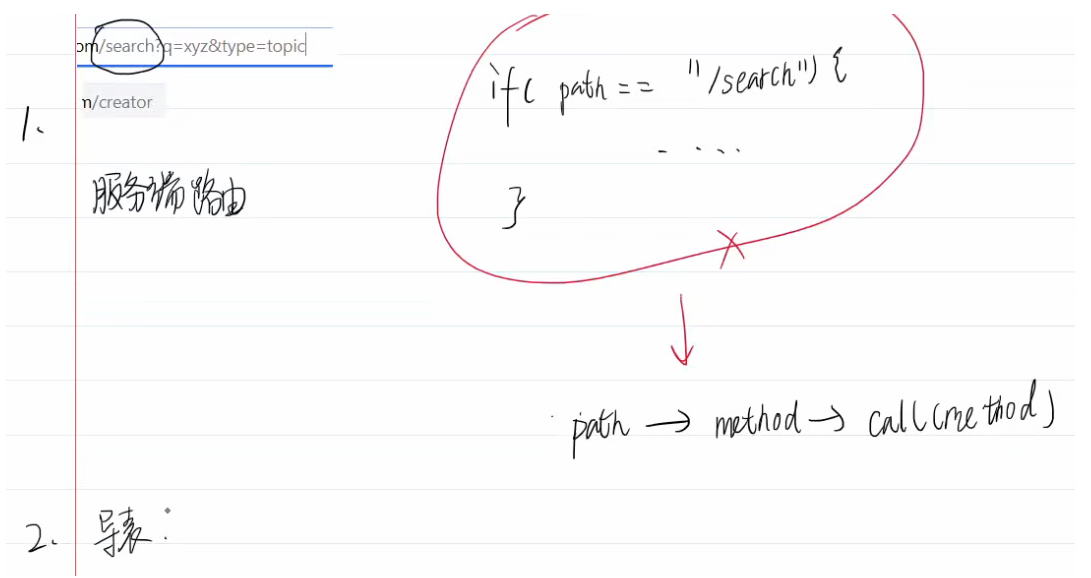 om/search?q=xyz&type=topic
m/creator
1.
服务端路由
if( path == "/search") {
- ....
}
path → method → call(method)
2. 导表: